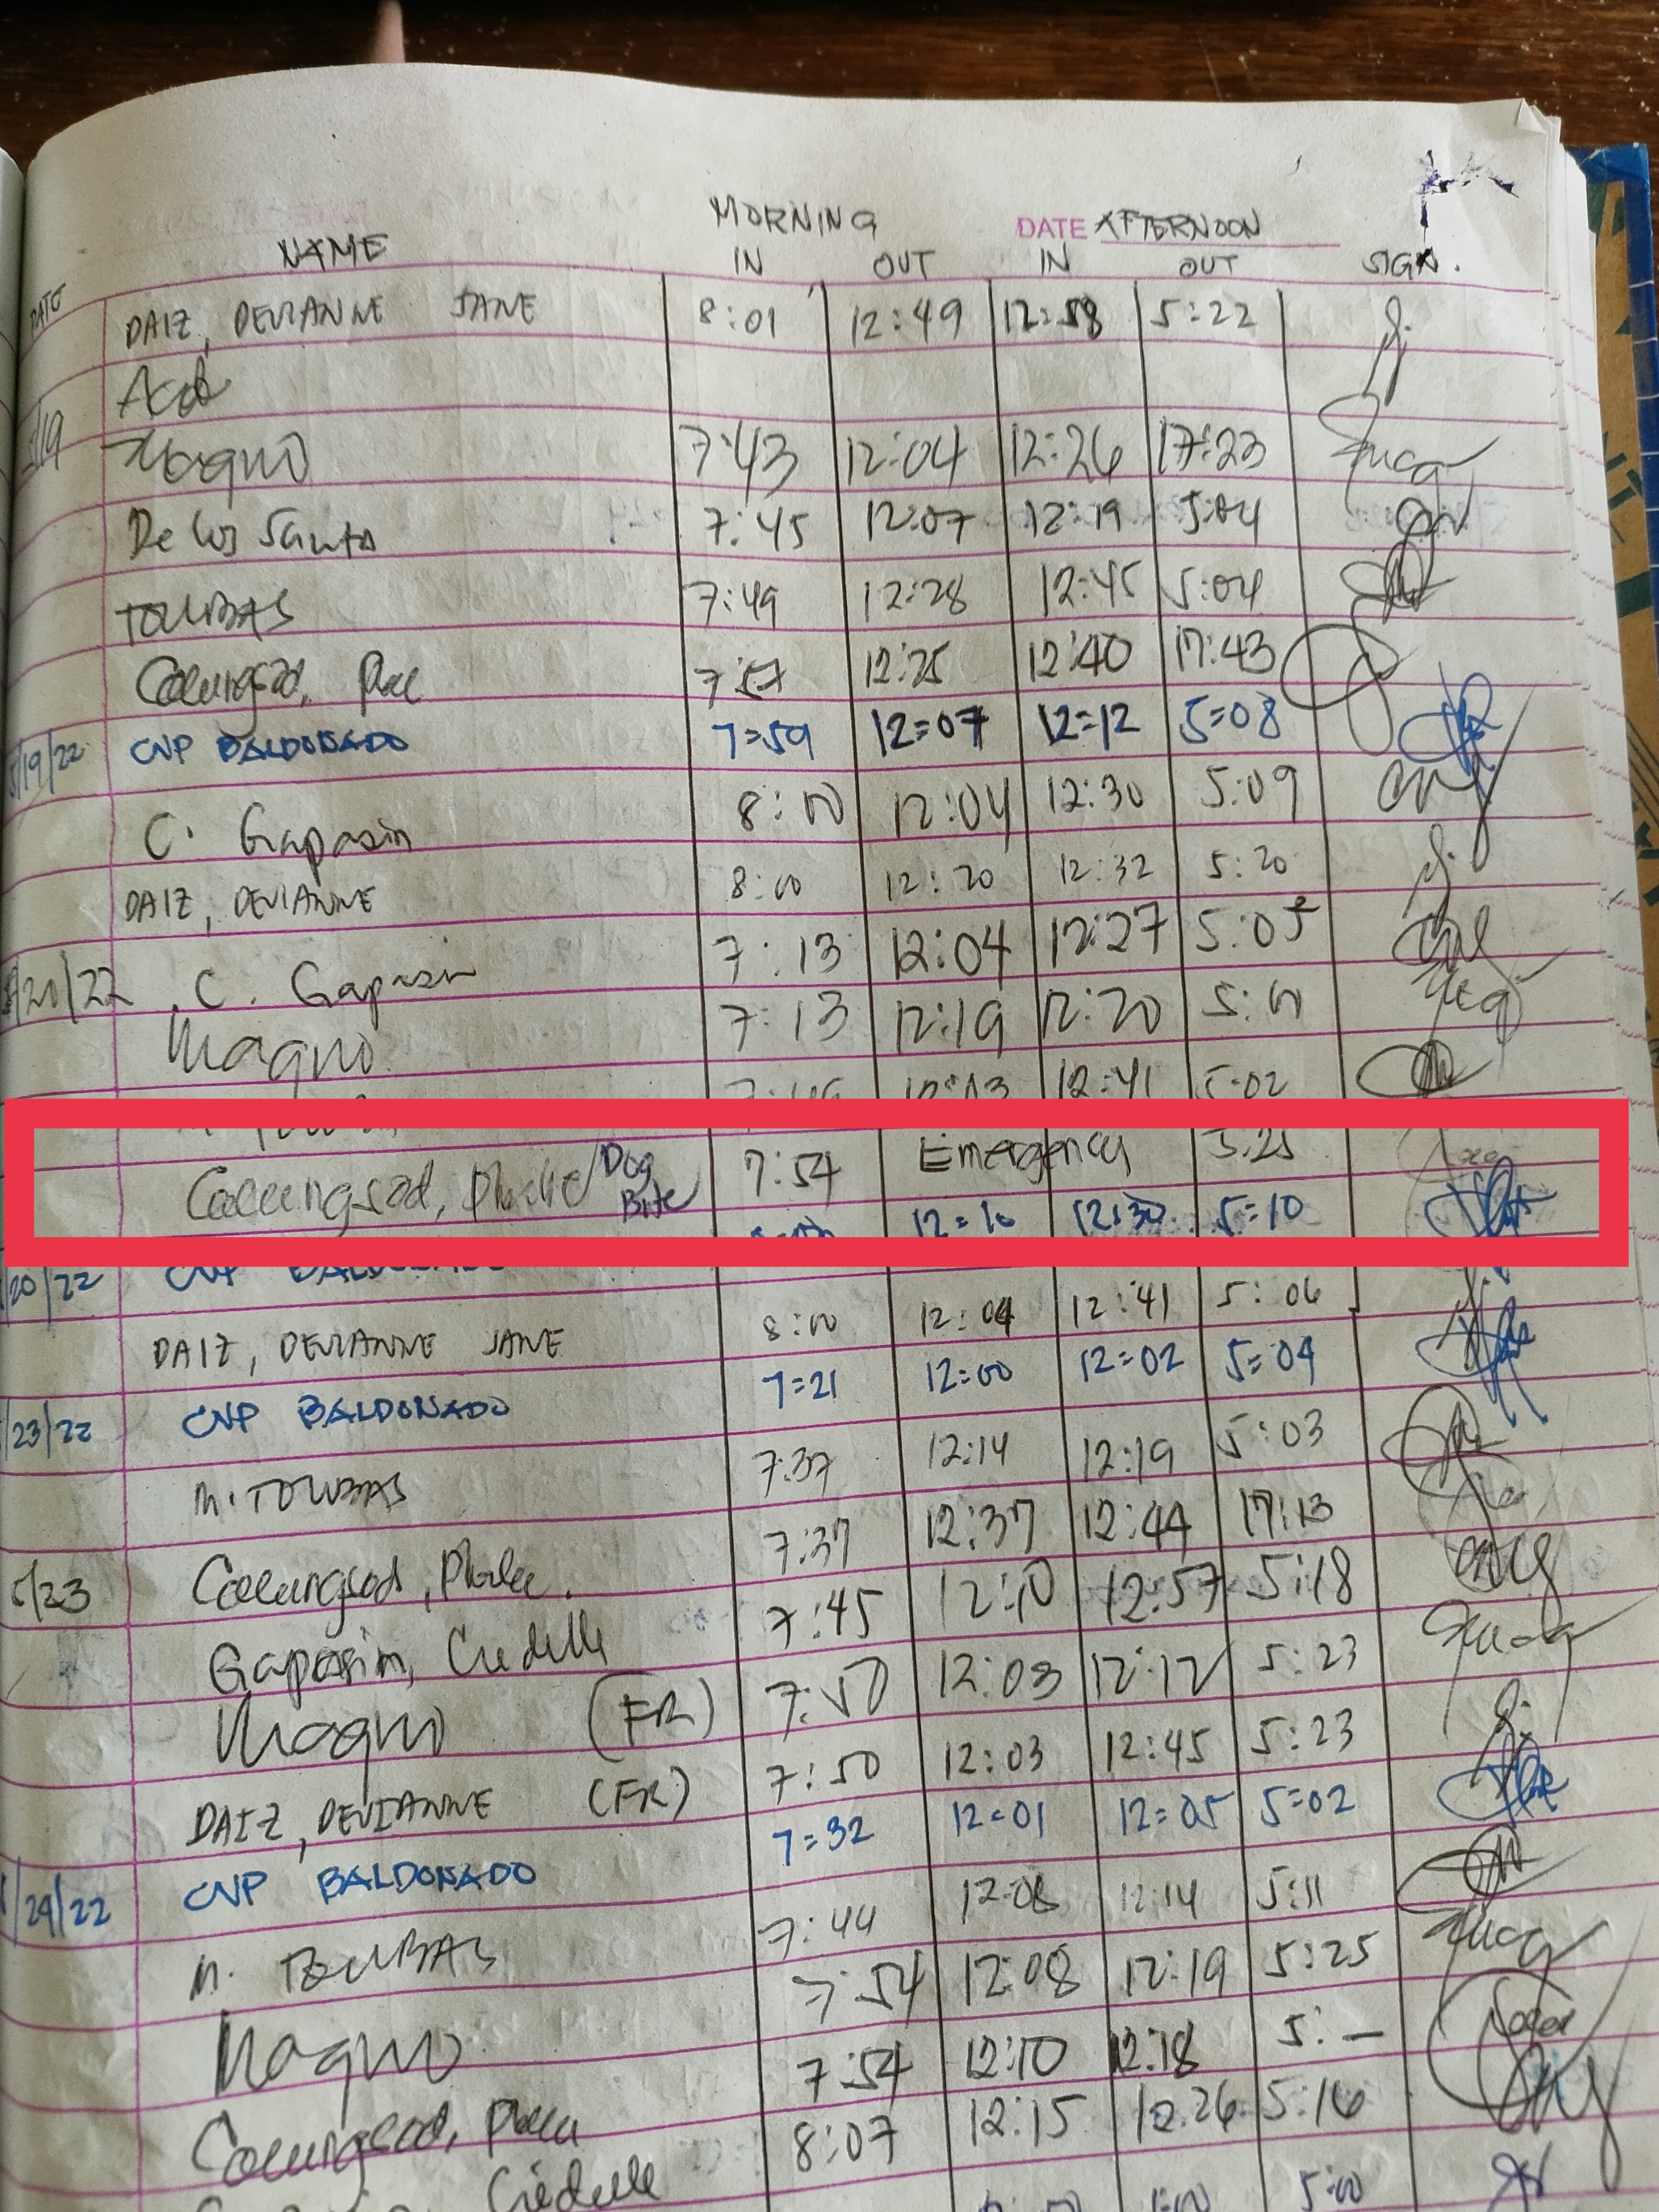 MORNING DATE AFTERNOON
DATE NAME IN OUT IN OUT SIGN.
DAIZ, DEVIANNE JANE 8:01 12:49 12:58 5:22
5/19 Magno 7:43 12:04 12:26 17:23
De los Santos 7:45 12:07 12:19 5:04
TOLIBAS 7:49 12:28 12:45 5:04
7:57 12:25 12:40 17:43
5/19/22 CNP BALDONADO 7=59 12=07 12=12 5=08
C. Gapasin 8:00 12:04 12:30 5:09
DAIZ, DEVIANNE 8:00 12:20 12:32 5:20
5/20/22 C. Gapasin 7:13 12:04 12:27 5:05
Magno 7:13 12:19 12:20 5:00
12:41 5:02
Dog Bite 7:54 Emergency 5:25
20/22 CNP BALDONADO 12=10 12:30 5=10
DAIZ, DEVIANNE JANE 8:00 12:04 12:41 5:06
/23/22 CNP BALDONADO 7=21 12=00 12=02 5=04
M. TOLIBAS 7:37 12:14 12:19 5:03
5/23 7:37 12:37 12:44 17:13
Gapasin, Criedelle 7:45 12:10 12:57 5:18
Magno (FR) 7:50 12:03 12:12 5:23
DAIZ, DEVIANNE (FR) 7:50 12:03 12:45 5:23
/24/22 CNP BALDONADO 7=32 12=01 12=05 5=02
M. TOLIBAS 7:44 12:08 12:14 5:11
Magno 7:54 12:08 12:19 5:25
7:54 12:10 12:18 5:—
Criedelle 8:07 12:15 12:26 5:16
5:00